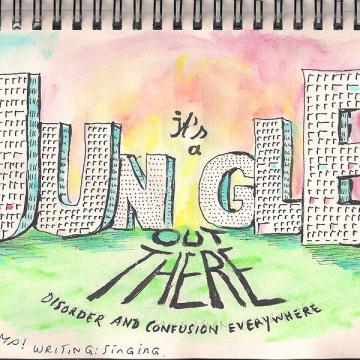 it's
a
JUNGLE
OUT
THERE
DISORDER AND CONFUSION EVERYWHERE
WRITING: SINGING.